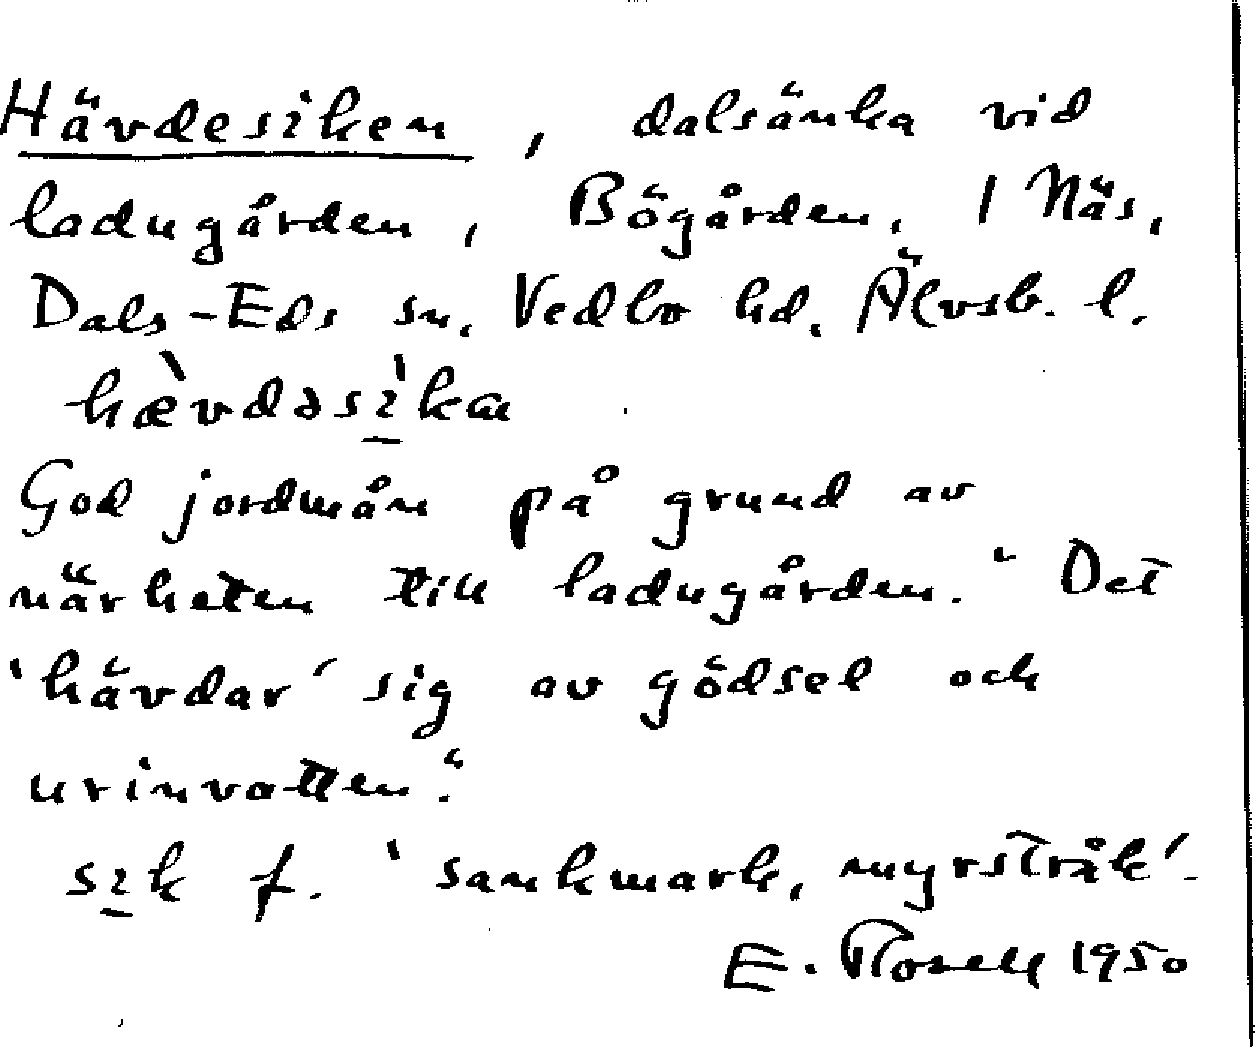 Hävdesiken, dalsänka vid
ladugården, Bögården, 1 Näs,
Dals-Eds sn, Vedbo hd, Älvsb. l.
hæ̀vdəsì̱ka
God jordmån på grund av
närheten till ladugården. "Det
'hävdar' sig av gödsel och
urinvatten."
si̱k f. 'sankmark, myrstråk'.
E. 1950